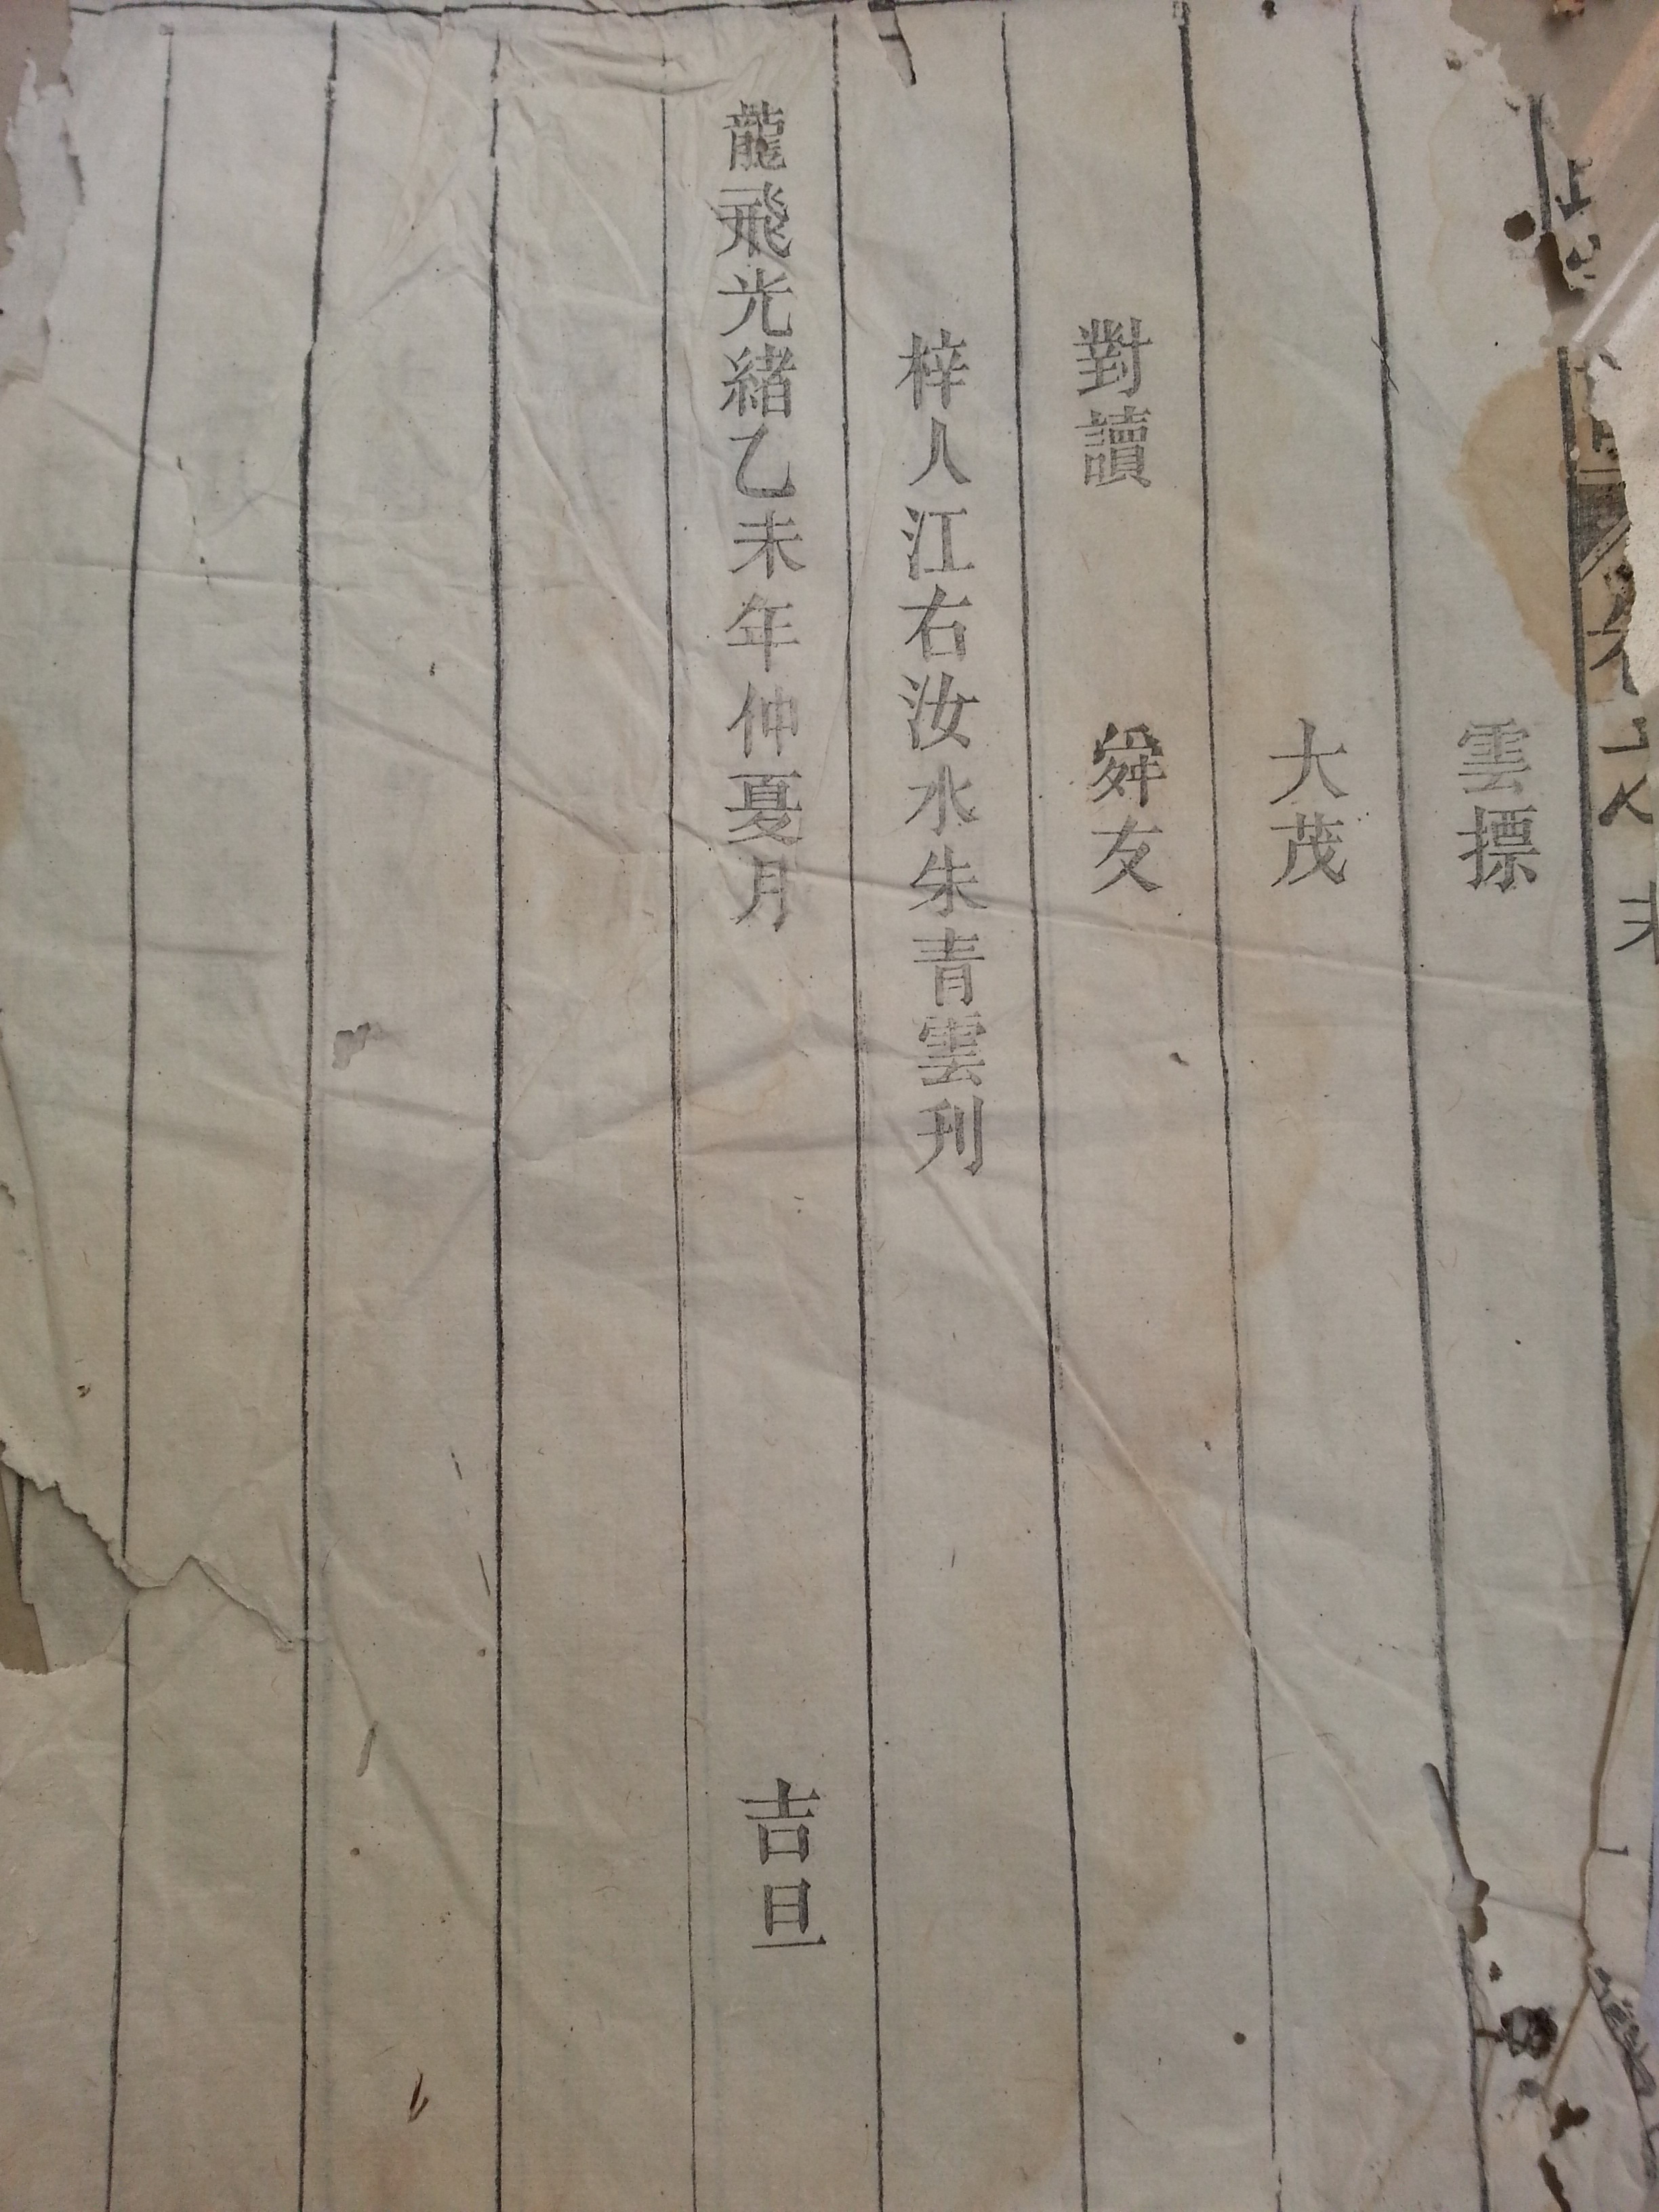 雲摽
大茂
對讀 舜友
梓人江右汝水朱青雲刋
龍飛光緒乙未年仲夏月 吉旦